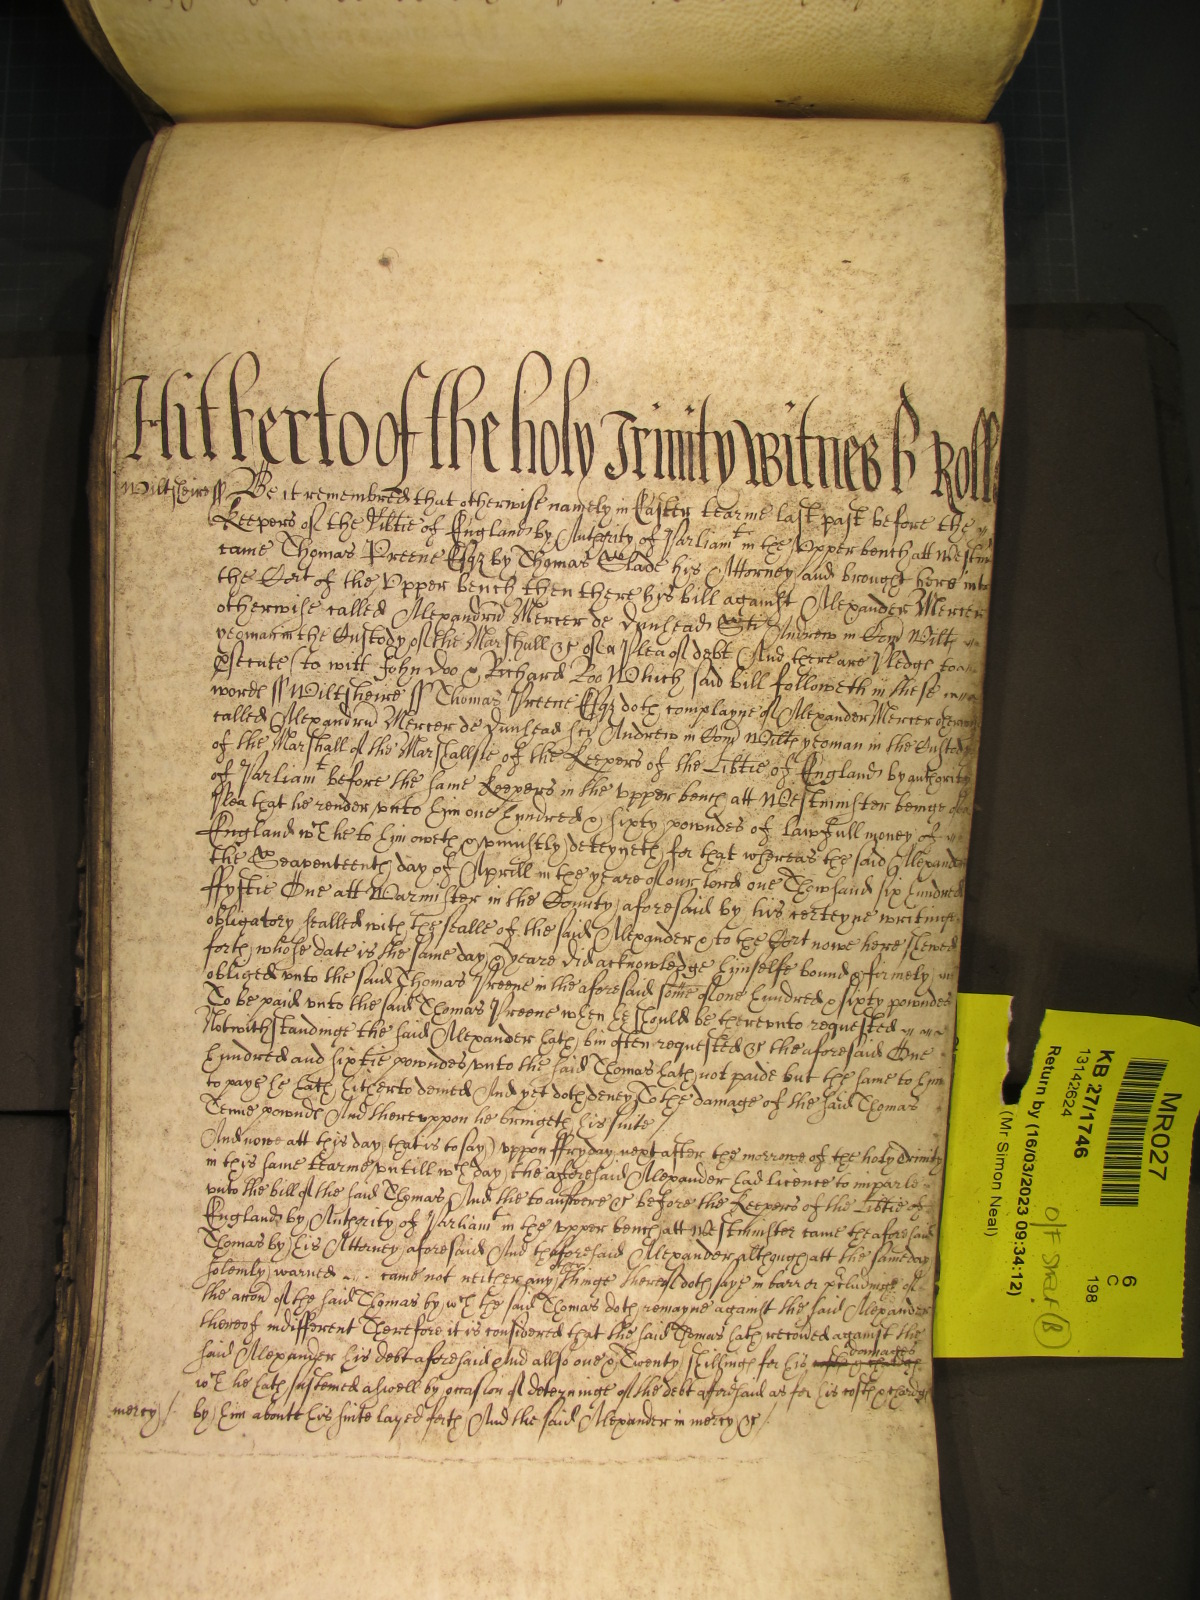 Hitherto of the holy Trinity Witnes H Roll
Wiltsheire ss Be it remembred that otherwise namely in Easter tearme last past before the
Keepers of the Libtie of England by Authority of Parliamt in the Upper bench att Westm
came Thomas Preene Esqz by Thomas Slade his Attorney and brought here into
the Cort of the Upper bench then there his bill against Alexander Mercer
otherwise called Alexandrũ Mercer de Dunhead Sti Andrew in Com̃ Wilts
yeoman in the Custody of the Marshall &c of a Plea of debt And there are Pledge to
psecute (to witt) John Doo & Richard Roo Which said bill followeth in these
words ss Wiltsheire ss Thomas Preene Esqz doth complayne of Alexander Mercer otherwise
called Alexandrũ Mercer de Dunhead Sci Andrew in Com̃ Wiltes yeoman in the Custody
of the Marshall of the Marshallsie of the Keepers of the Libtie of England by authority
of Parliamt before the same Keepers in the upper bench att Westminister beinge of a
Plea that he render unto him one hundred & sixty powndes of lawfull money of
England wch he to him oweth & uniustly deteyneth for that whereas the said Alexander
the Seaventeenth day of Aprill in the yeare of our lord one Thowsand six hundred
ffyftie One att Warmister in the County aforesaid by his certeyne writinge
obligatory sealled with the sealle of the said Alexander & to the Cort nowe here shewed
forth whose date is the same day & yeare did acknowledge himselfe bound & firmely
obliged unto the said Thomas Preene in the aforesaid some of one hundred & sixty powndes
To be paid unto the said Thomas Preene when he should be thereunto requested
Notwithstandinge the said Alexander hath bin often requested &c the aforesaid One
hundred and sixtie powndes unto the said Thomas hath not paide but the same to him
to paye he hath hitherto denied And yet doth deney To the damage of the said Thomas
Tenne pownds And thereuppon he bringeth his suite /
And nowe att this day that is to say) uppon ffryday next after the morrowe of the holy Trinity
in this same tearme untill wch day the aforesaid Alexander had licence to imparle
unto the bill of the said Thomas And the to answere &c before the Keepers of the Libtie of
England by Authority of Parliamt in the upper bench att Westminster came the aforesaid
Thomas by his Attorney aforesaid And thaforesaid Alexander although att the same day
solemly warned came not neither any thinge thereof doth saye in barr or pcludinge of
the accõn of the said Thomas by wch the said Thomas doth remayne against the said Alexander
thereof indifferent Therefore it is considered that the said Thomas hath recoued against the
said Alexander his debt aforesaid And allso one & Twenty shillings for his damages
wch he hath susteined aswell by occasion of deteyninge of the debt aforesaid as for his costs & chardges
mercy /. by him aboute his suite layed forth And the said Alexander in mercy &c /
MR027
KB 27/1746
13142624
Return by (16/03/2023 09:34:12)
(Mr Simon Neal)
6
C
198
off shelf (B)